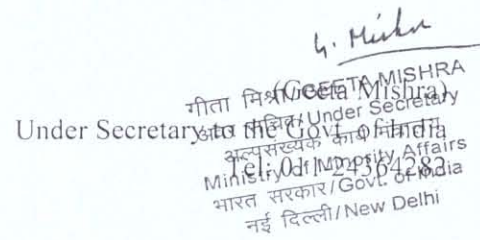 G. Mishra
(Geeta Mishra)
Under Secretary to the Govt. of India
Tel: 011-24364283
गीता मिश्रा/GEETA MISHRA
अवर सचिव/Under Secretary
अल्पसंख्यक कार्य मंत्रालय
Ministry of Minority Affairs
भारत सरकार/Govt. of India
नई दिल्ली/New Delhi